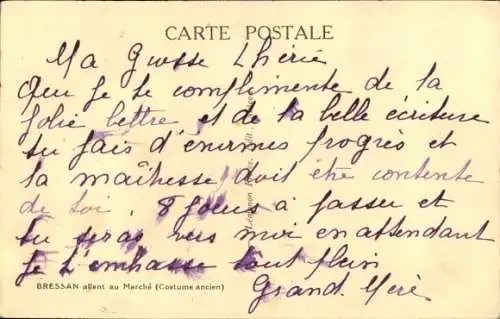 CARTE POSTALE
Ma Grosse Chérie
Que je te complimente de la
jolie lettre et de la belle écriture
tu fais d'énormes progrès et
la maîtresse doit être contente
de toi. 8 jours à passer et
tu seras vers moi en attendant
je t'embrasse tout plein
Grand. Mère
BRESSAN allant au Marché (Costume ancien)